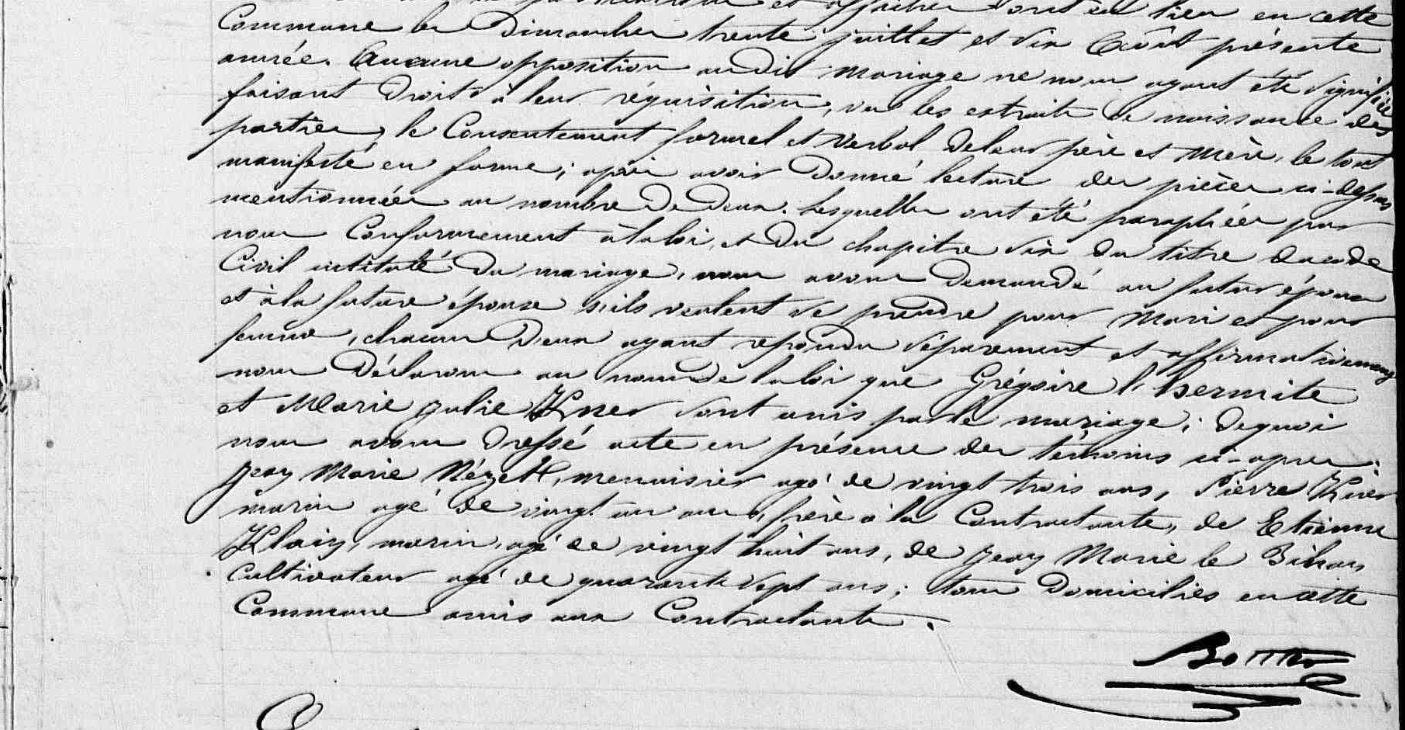 et afficher ont eu lieu en cette
Commune les Dimanches trente juillet et six Août présente
année. Aucune opposition audit mariage ne nous ayant été signifiée
faisant droit à leur réquisition, vu les extraits de naissance des
parties, le Consentement formel et verbal de leurs père et mère, le tout
manifesté en forme; après avoir donné lecture des pièces ci-dessus
mentionnées au nombre de deux. lesquelles ont été paraphées par
nous Conformément à la loi, et du chapitre six du titre du code
Civil intitulé du mariage, nous avons demandé au futur époux
et à la future épouse s'ils veulent se prendre pour Mari et pour
femme, chacun d'eux ayant répondu séparément et affirmativement
nous Déclarons au nom de la loi que Grégoire l'hermite
et Marie Julie sont unis par le mariage; de quoi
nous avons dressé acte en présence des témoins ci-après:
Jean Marie Nézet, menuisier agé de vingt trois ans, Pierre
marin agé de vingt un ans, frère à la Contractante, de Etienne
marin, agé de vingt huit ans, de Jean Marie le Bihan
Cultivateur agé de quarante sept ans; tous Domiciliés en cette
Commune amis aux Contractants.